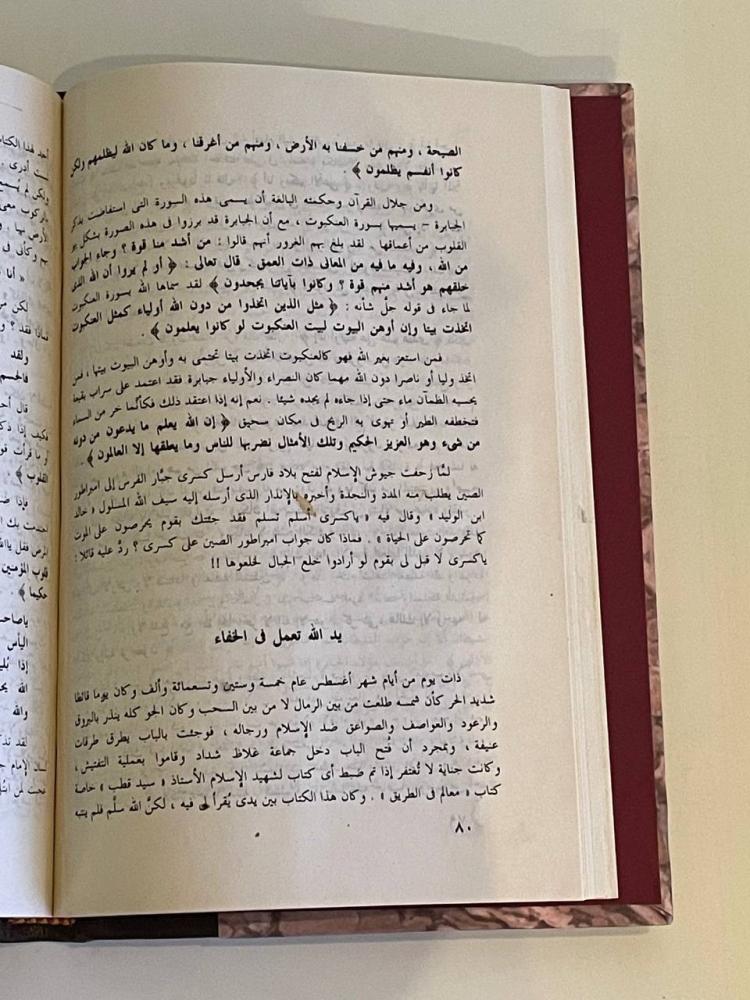 الصيحة ، ومنهم من خسفنا به الأرض ، ومنهم من أغرقنا ، وما كان الله ليظلمهم ولكن
كانوا أنفسم يظلمون ﴾ .
ومن جلال القرآن وحكمته البالغة أن يسمى هذه السورة التى استفاضت بذكر
الجبابرة – يسميها بسورة العنكبوت ، مع أن الجبابرة قد برزوا فى هذه الصورة بشكل
القلوب من أعماقها . لقد بلغ بهم الغرور أنهم قالوا : من أشد منا قوة ؟ وجاء الجواب
من الله ، وفيه ما فيه من المعانى ذات العمق . قال تعالى : ﴿ أو لم يروا أن الله الذى
خلقهم هو أشد منهم قوة ؟ وكانوا بآياتنا يجحدون ﴾ لقد سماها الله بسورة العنكبوت
لما جاء فى قوله جلّ شأنه : ﴿ مثل الذين اتخذوا من دون الله أولياء كمثل العنكبوت
اتخذت بيتا وإن أوهن البيوت لبيت العنكبوت لو كانوا يعلمون ﴾ .
فمن استعز بغير الله فهو كالعنكبوت اتخذت بيتا تحتمى به وأوهن البيوت بيتها ، فمن
اتخذ وليا أو ناصرا دون الله مهما كان النصراء والأولياء جبابرة فقد اعتمد على سراب بقيعة
يحسبه الظمآن ماء حتى إذا جاءه لم يجده شيئا . نعم إنه إذا اعتقد ذلك فكأنما خر من السماء
فتخطفه الطير أو تهوى به الريح فى مكان سحيق ﴿ إن الله يعلم ما يدعون من دونه
من شىء وهو العزيز الحكيم وتلك الأمثال نضربها للناس وما يعقلها إلا العالمون ﴾ .
لمّا زحفت جيوش الإسلام لفتح بلاد فارس أرسل كسرى جبّار الفرس إلى امبراطور
الصين يطلب منه المدد والنجدة وأخبره بالإنذار الذى أرسله إليه سيف الله المسلول « خالد
ابن الوليد » وقال فيه « ياكسرى أسلم تسلم فقد جئتك بقوم يحرصون على الموت
كما تحرصون على الحياة » . فماذا كان جواب امبراطور الصين على كسرى ؟ ردّ عليه قائلا :
ياكسرى لا قبل لى بقوم لو أرادوا خلع الجبال لخلعوها !!
يد الله تعمل فى الخفاء
ذات يوم من أيام شهر أغسطس عام خمسة وستين وتسعمائة وألف وكان يوما قائظا
شديد الحر كأن شمسه طلعت من بين الرمال لا من بين السحب وكان الجو كله ينذر بالبروق
والرعود والعواصف والصواعق ضد الإسلام ورجاله ، فوجئت بالباب يطرق طرقات
عنيفة ، وبمجرد أن فُتح الباب دخل جماعة غلاظ شداد وقاموا بعملية التفتيش ،
وكانت جناية لا تُغتفر إذا تم ضبط أى كتاب لشهيد الإسلام الأستاذ « سيد قطب » خاصة
كتاب « معالم فى الطريق » . وكان هذا الكتاب بين يدى يُقرأ لى فيه ، لكنَّ الله سلَّم فلم ينتبه
٨٠